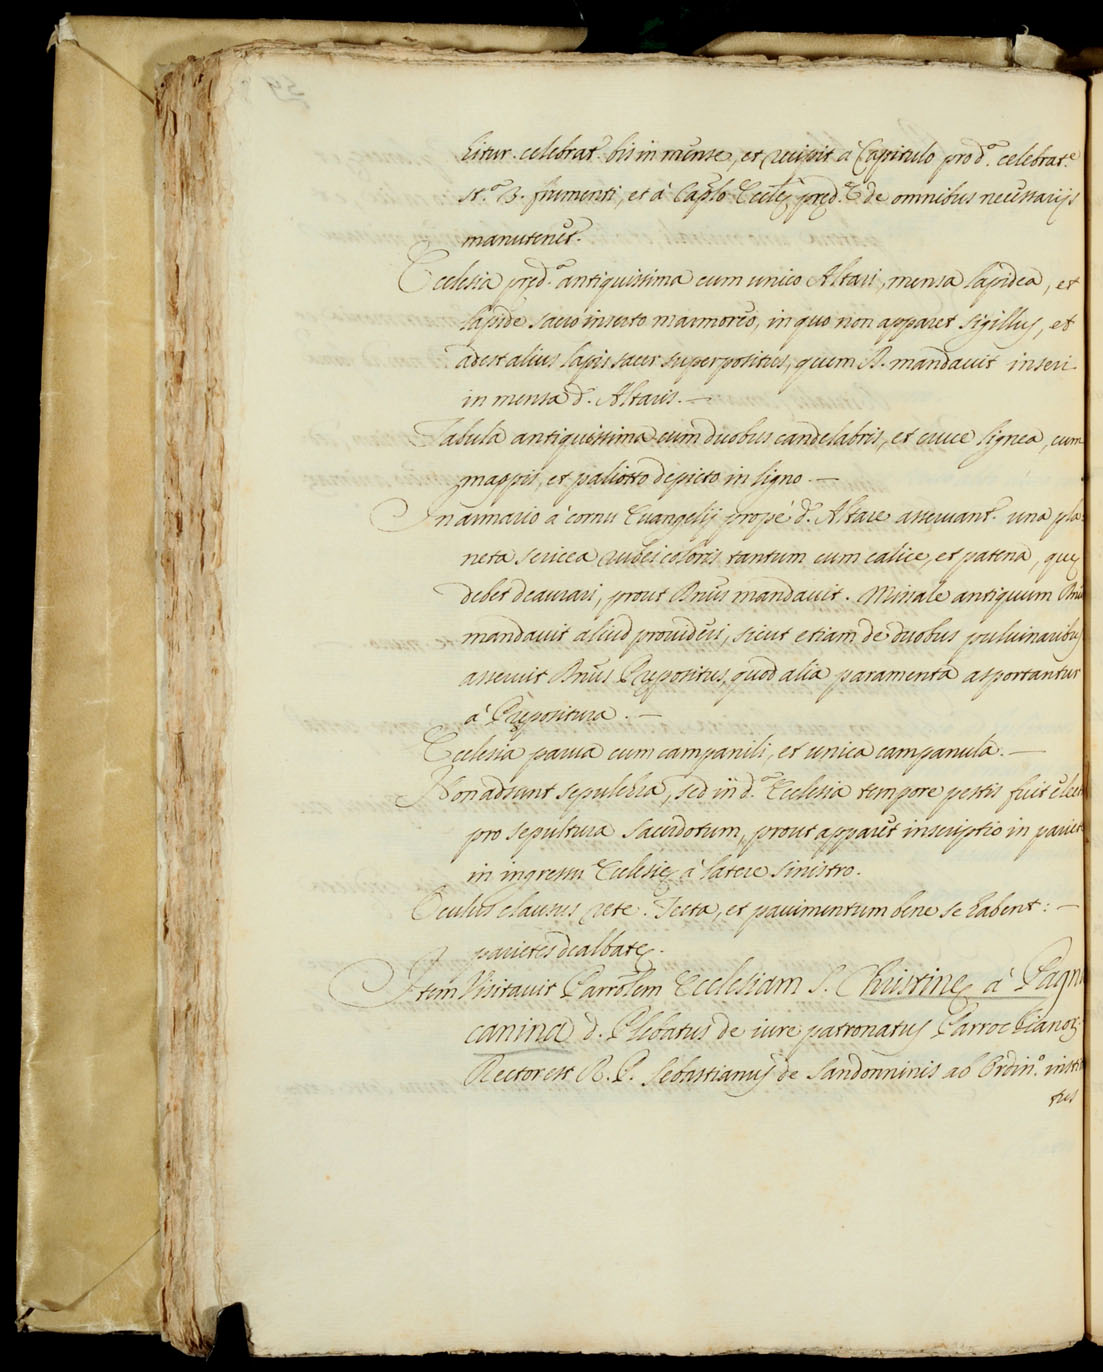 bitur. celebrat. bis in mense, et recipit à Capitulo pro d.ᵃ celebrat.ᵉ
st.ᵃ 3. frumenti, et à Caplo Ecclę pręd.ᵉ de omnibus necessarijs
manutenet.
Ecclesia pręd.ᵃ antiquissima cum unico Altari, mensa lapidea, et
lapide sacro inserto marmoreo, in quo non apparet sigillus, et
adest alius lapis sacer superpositus, quem R. mandauit inseri
in mensa d. Altaris. —
Tabula antiquissima cum duobus candelabris, et cruce lignea, cum
mappis, et paliotto depicto in ligno. —
In armario à cornu Euangelij propè d. Altare asseruant. una pla-
neta sericea rubei coloris tantum cum calice, et patena, quę
debet deaurari, prout Rmus mandauit. Missale antiquum Rmus
mandauit aliud prouideri, sicut etiam de duobus puluinaribus
asseruit Rmus Prępositus, quod alia paramenta asportantur
à Prępositura. —
Ecclesia parua cum campanili, et unica campanula. —
Non adsunt sepulchra, sed in d.ᵃ Ecclesia tempore pestis fuit elect
pro sepultura sacerdotum, prout apparet inscriptio in pariet
in ingressu Ecclesię à latere sinistro.
Oculus clausus rete. Tecta, et pauimentum bene se habent: —
parietes dealbatę.
Item Visitauit Parrolem Ecclesiam S. Christinę à Pagn
canina d. Plebatus de iure patronatus Parrochianor.
Rector est R. P. Sebastianus de Sandonninis ab Ordin.º insti
tus